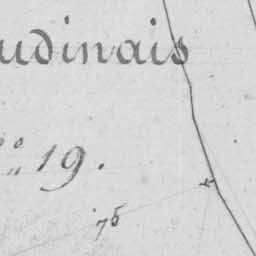 udinais
o 19.
75